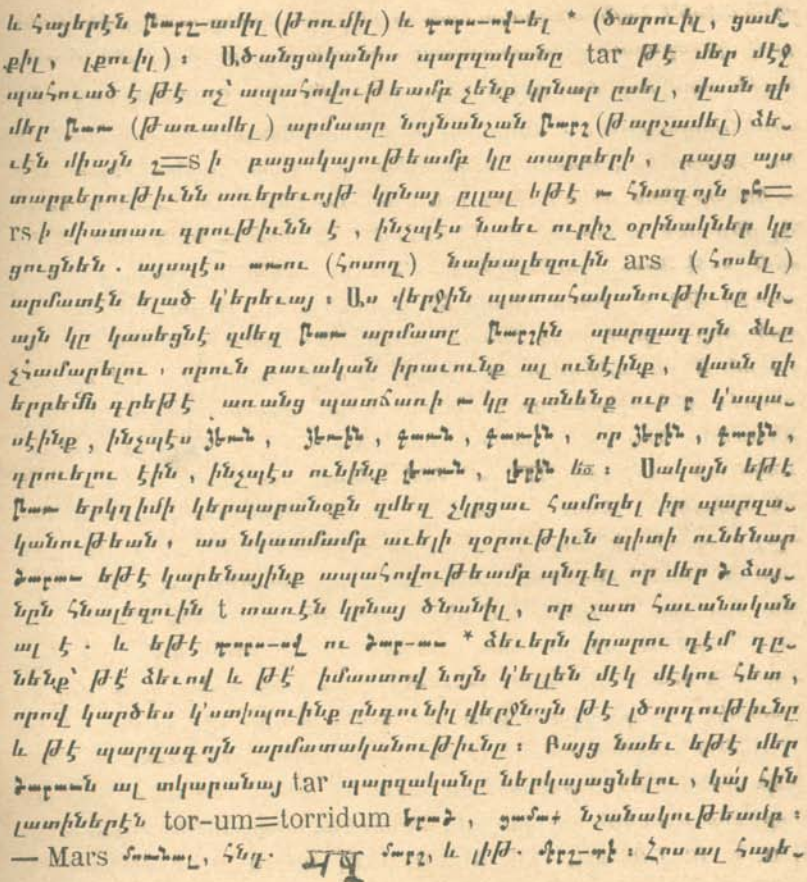 և Հայերէն Թարշ-ամիլ (Թոռմիլ) և տոչո-ով-ել * (ծարուիլ, ցամ֊
քիլ, լքուիլ)։ Ածանցականիս պարզականը tar թէ մեր մէջ
պահուած է թէ ոչ՝ ապահովութեամբ չենք կրնար ըսել, վասն զի
մեր Թառ (Թառամել) արմատը նոյնանշան Թարշ (Թարշամել) ձե֊
ւէն միայն շ=s ի բացակայութեամբ կը տարբերի, բայց այս
տարբերութիւնն առերեւոյթ կրնայ ըլլալ եթէ ռ հնագոյն րս=
rs ի միատառ գրութիւնն է, ինչպէս նաեւ ուրիշ օրինակներ կը
ցուցնեն. այսպէս առու (հոսող) նախալեզուին ars (հոսել)
արմատէն ելած կ՚երեւայ։ Աս վերջին պատահականութիւնը մի֊
այն կը կասեցնէ զմեզ Թառ արմատը Թարշին պարզագոյն ձեւը
չհամարելու, որուն բաւական իրաւունք ալ ունէինք, վասն զի
երբեմն գրեթէ առանց պատճառի ռ կը գտնենք ուր ր կ՚սպա֊
սէինք, ինչպէս ձեռն, ձեռին, գառն, գառին, որ ձերին, գարին,
գրուելու էին, ինչպէս ունինք լեառն, լերին ևն։ Սակայն եթէ
Թառ երկդիմի կերպարանօքն զմեզ չկրցաւ համոզել իր պարզա֊
կանութեան, աս նկատմամբ աւելի զօրութիւն պիտի ունենար
ծարաւ եթէ կարենայինք ապահովութեամբ պնդել որ մեր ծ ձայ֊
նըն հնալեզուին t տառէն կրնայ ծնանիլ, որ շատ հաւանական
ալ է. և եթէ տոչո-ով ու ծար-աւ * ձեւերն իրարու դէմ դը֊
նենք՝ թէ՛ ձեւով և թէ՛ իմաստով նոյն կ՚ելլեն մէկ մէկու հետ,
որով կարծես կ՚ստիպուինք ընդունիլ վերջնոյն թէ լծորդութիւնը
և թէ պարզագոյն արմատականութիւնը։ Բայց նաեւ եթէ մեր
ծարաւն ալ տկարանայ tar պարզականը ներկայացնելու, կայ հին
լատիներէն tor-um=torridum երած, ցամաք նշանակութեամբ։
— Mars մոռնալ, հնդ. मृष् մարշ, և լիթ. միրշ-տի։ Հոս ալ հայե֊